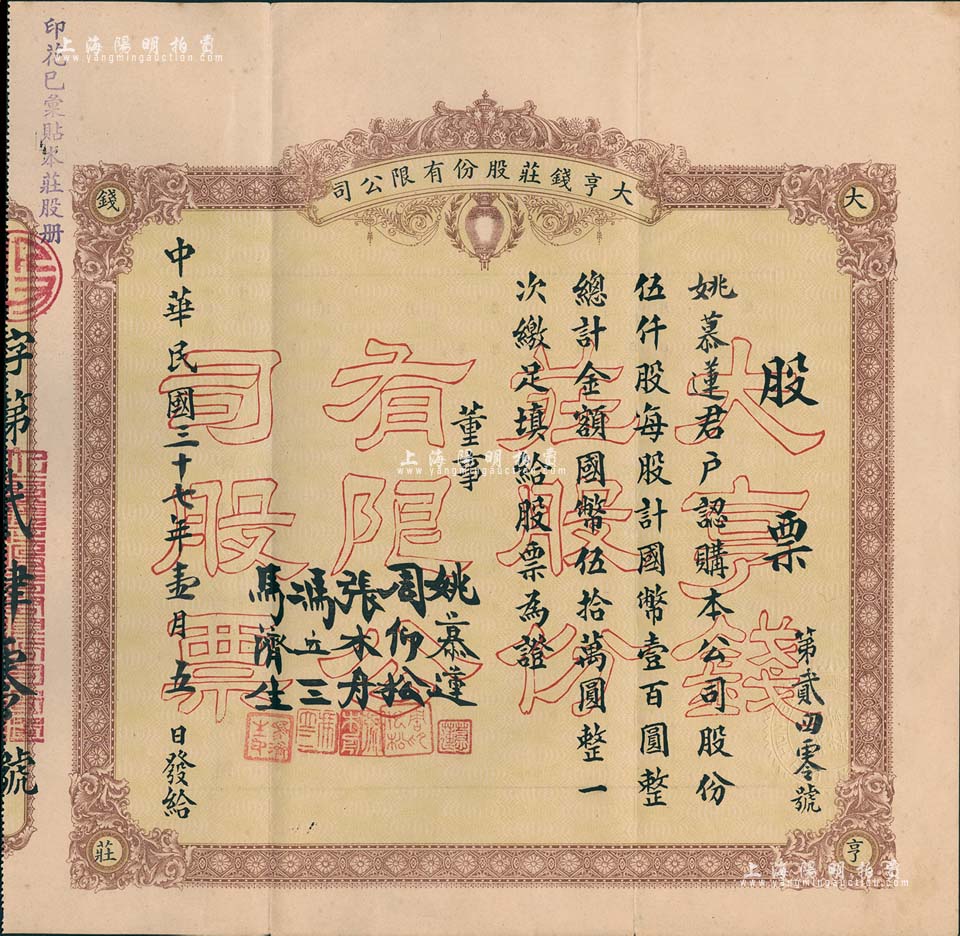 上海陽明拍賣
www.yangmingauction.com
印花已彙貼本莊股册
大亨錢莊股份有限公司
大
亨
錢
莊
股票
第貳四零號
姚慕蓮君户認購本公司股份
伍仟股每股計國幣壹百圓整
總計金額國幣伍拾萬圓整一
次繳足填給股票為證
董事
姚慕蓮
周仰松
張水舟
馮立三
馬濟生
中華民國三十七年壹月五日發給
大亨錢
莊股份
有限公
司股票
字第貳肆零號
上海陽明拍賣
www.yangmingauction.com
上海陽明拍賣
www.yangmingauction.com